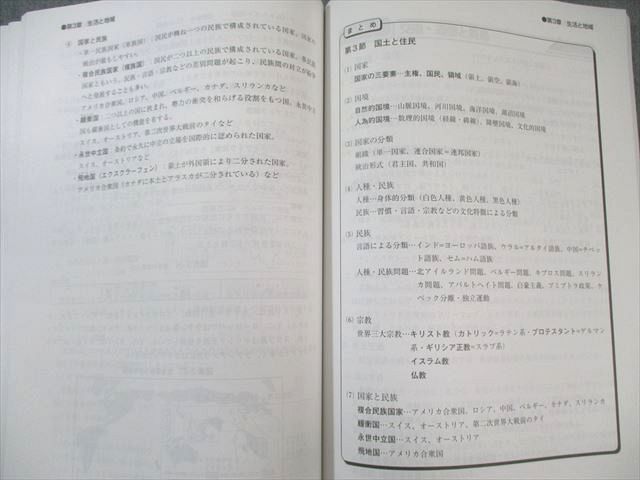 ●第3章 生活と地域
④ 国家と民族
・単一民族国家(単族国):国民が概ね一つの民族で構成されている国家。
統治が最もしやすい。
・複合民族国家(複族国):国民が二つ以上の民族で構成されている国家。多民族
国家ともいう。民族・言語・宗教などの差別問題が起こり、民族間の対立が紛争
へと発展することも多い。
アメリカ合衆国、ロシア、中国、ベルギー、カナダ、スリランカなど
・緩衝国:二つ以上の国に挟まれ、勢力の衝突を和らげる役割をもつ国。永世中立
国も緩衝国としての機能を有する。
スイス、オーストリア、第二次世界大戦前のタイなど
・永世中立国:条約で永久に中立の立場を国際的に認められた国家。
スイス、オーストリアなど
・飛地国(エクスクラーフェン):領土が外国領により二分された国家。
アメリカ合衆国(カナダに本土とアラスカが二分されている)など
●第3章 生活と地域
まとめ
第3節 国土と住民
(1) 国家
国家の三要素…主権、国民、領域(領土、領空、領海)
(2) 国境
自然的国境…山脈国境、河川国境、海洋国境、湖沼国境
人為的国境…数理的国境(経線・緯線)、障壁国境、文化的国境
(3) 国家の分類
組織(単一国家、連合国家=連邦国家)
統治形式(君主国、共和国)
(4) 人種・民族
人種…身体的分類(白色人種、黄色人種、黒色人種)
民族…習慣・言語・宗教などの文化特徴による分類
(5) 民族
言語による分類…インド=ヨーロッパ語族、ウラル=アルタイ語族、中国=チベッ
ト語族、セム=ハム語族
人種・民族問題…北アイルランド問題、ベルギー問題、キプロス問題、スリラン
カ問題、アパルトヘイト問題、白豪主義、ブミプトラ政策、ケ
ベック分離・独立運動
(6) 宗教
世界三大宗教…キリスト教(カトリック=ラテン系・プロテスタント=ゲルマン
系・ギリシア正教=スラブ系)
イスラム教
仏教
(7) 国家と民族
複合民族国家…アメリカ合衆国、ロシア、中国、ベルギー、カナダ、スリランカ
緩衝国…スイス、オーストリア、第二次世界大戦前のタイ
永世中立国…スイス、オーストリア
飛地国…アメリカ合衆国